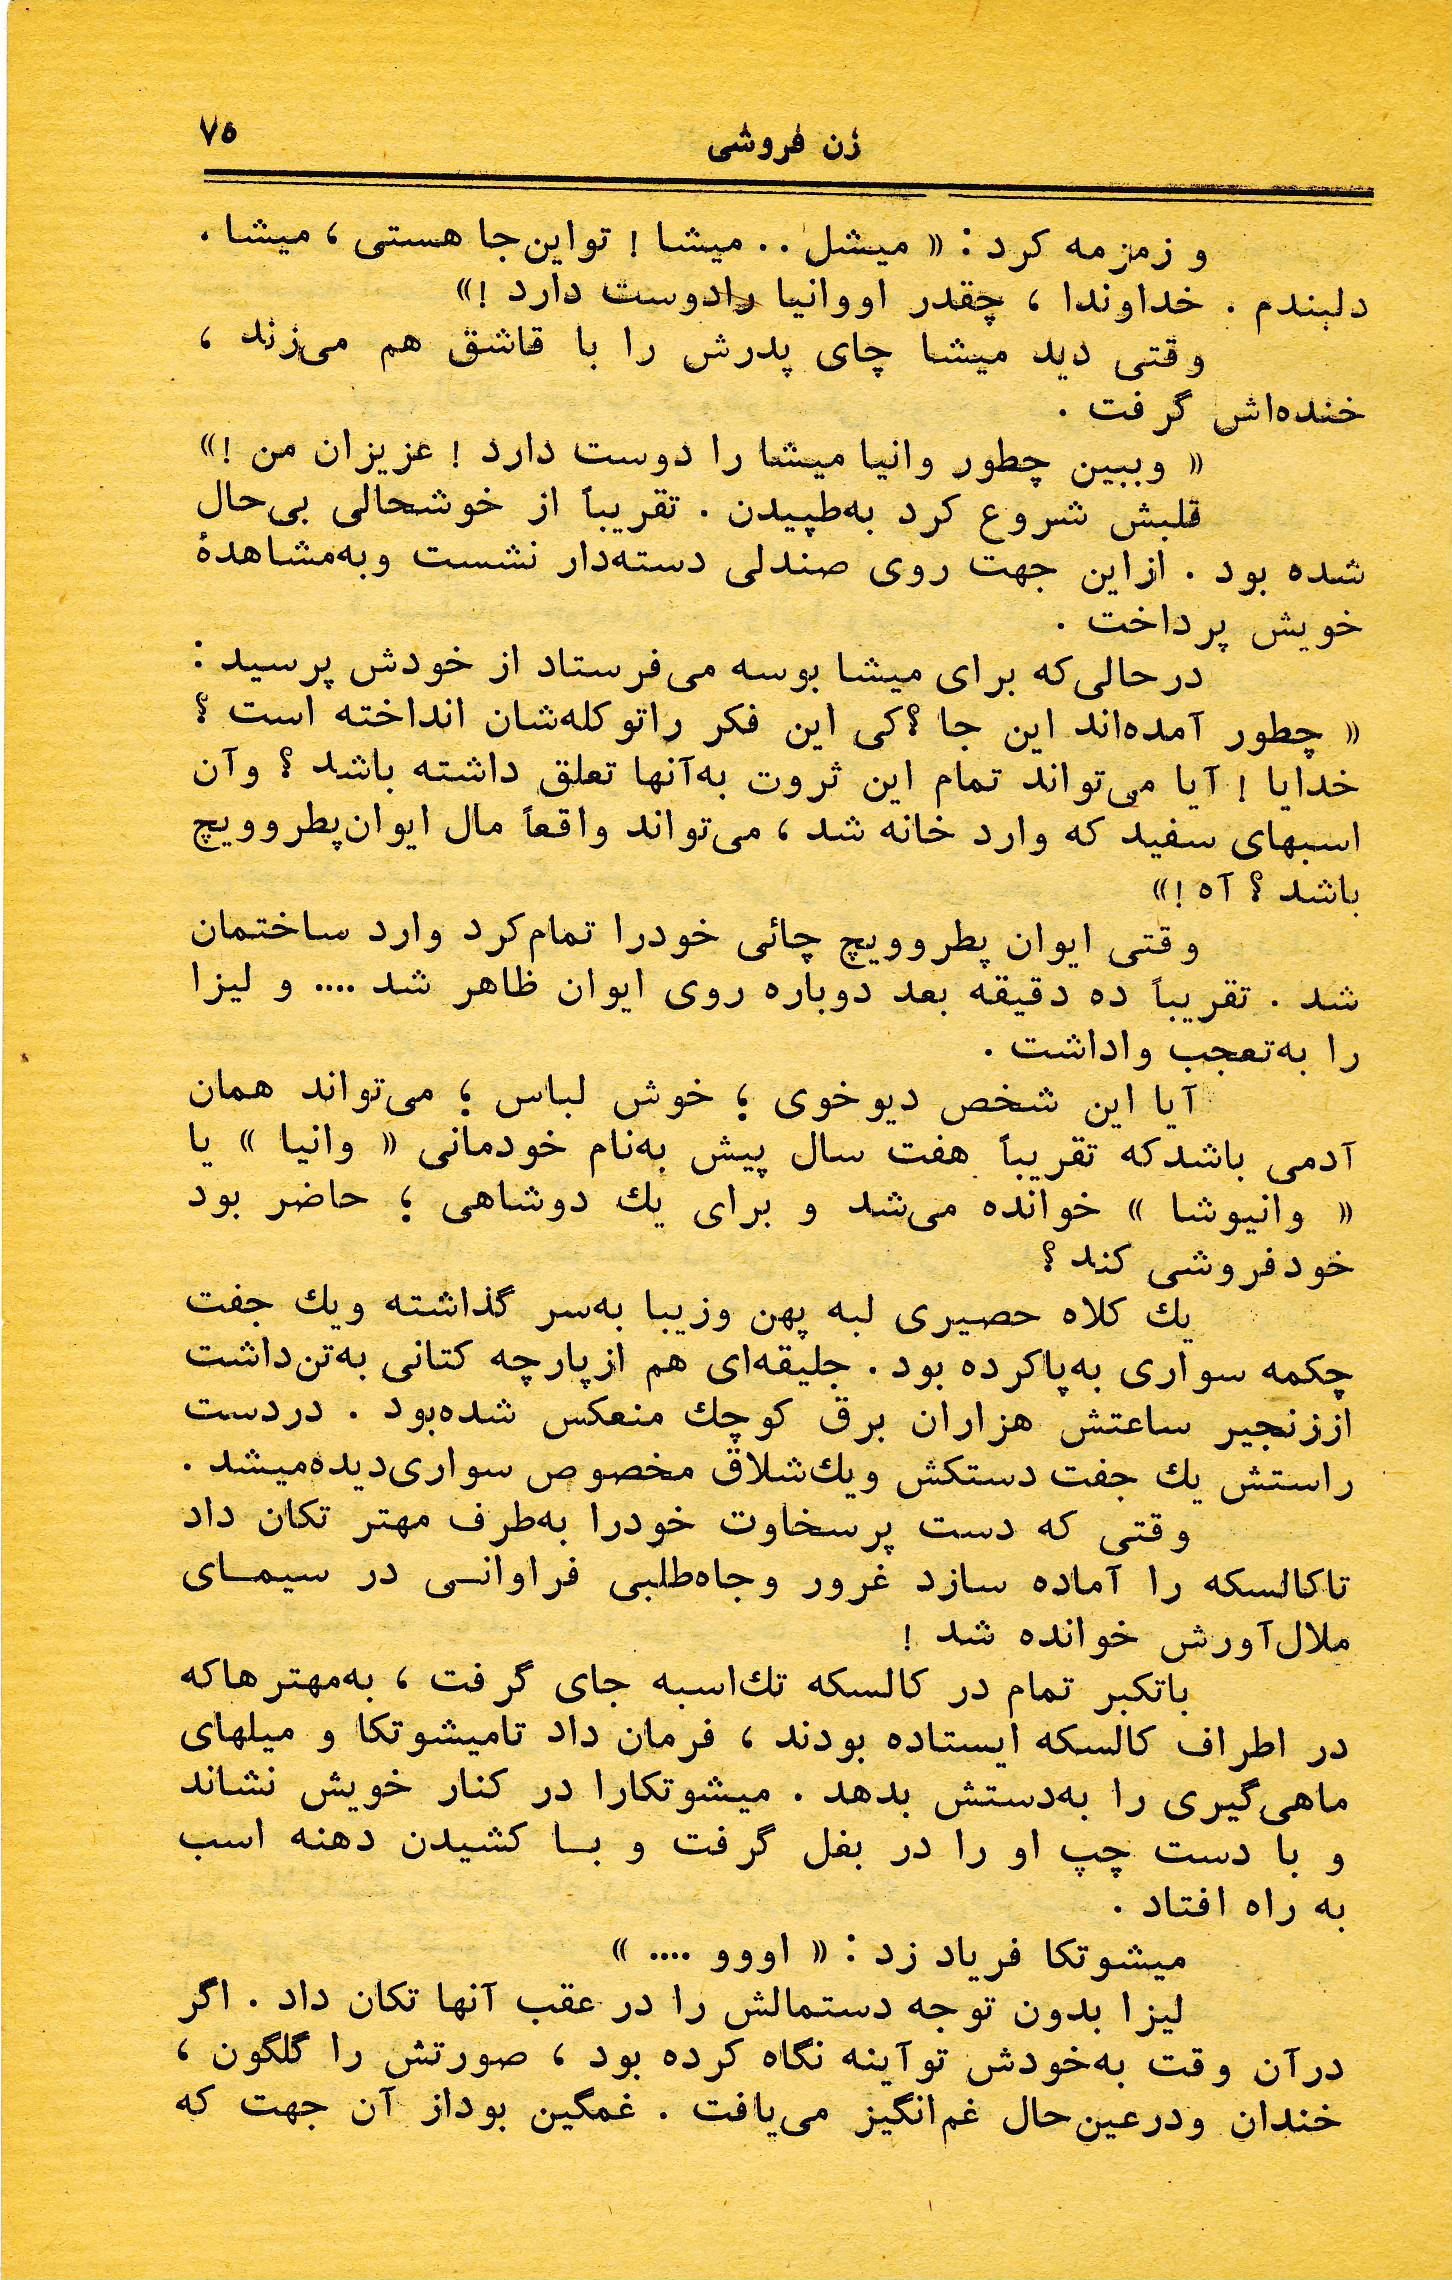 زن فروشی
۷۵
و زمزمه کرد : « میشل . . میشا ! تو این‌جا هستی ، میشا .
دلبندم . خداوندا ، چقدر او وانیا را دوست دارد !»
وقتی دید میشا چای پدرش را با قاشق هم می‌زند ،
خنده‌اش گرفت .
« و ببین چطور وانیا میشا را دوست دارد ! عزیزان من !»
قلبش شروع کرد به‌طپیدن . تقریباً از خوشحالی بی‌حال
شده بود . از این جهت روی صندلی دسته‌دار نشست و به‌مشاهدهٔ
خویش پرداخت .
در حالی‌که برای میشا بوسه می‌فرستاد از خودش پرسید :
« چطور آمده‌اند این جا ؟ کی این فکر را تو کله‌شان انداخته است ؟
خدایا ! آیا می‌تواند تمام این ثروت به‌آنها تعلق داشته باشد ؟ و آن
اسبهای سفید که وارد خانه شد ، می‌تواند واقعاً مال ایوان‌پطروویچ
باشد ؟ آه !»
وقتی ایوان پطروویچ چائی خودرا تمام‌کرد وارد ساختمان
شد . تقریباً ده دقیقه بعد دوباره روی ایوان ظاهر شد .... و لیزا
را به‌تعجب واداشت .
آیا این شخص دیوخوی ؛ خوش لباس ؛ می‌تواند همان
آدمی باشد که تقریباً هفت سال پیش به‌نام خودمانی « وانیا » یا
« وانیوشا » خوانده می‌شد و برای یك دوشاهی ؛ حاضر بود
خودفروشی کند ؟
یك کلاه حصیری لبه پهن وزیبا به‌سر گذاشته ویك جفت
چکمه سواری به‌پا کرده بود . جلیقه‌ای هم از پارچه کتانی به‌تن‌داشت
از زنجیر ساعتش هزاران برق کوچك منعکس شده‌بود . در دست
راستش یك جفت دستکش ویك‌شلاق مخصوص سواری‌دیده‌میشد .
وقتی که دست پرسخاوت خودرا به‌طرف مهتر تکان داد
تا کالسکه را آماده سازد غرور وجاه‌طلبی فراوانـی در سیمـای
ملال‌آورش خوانده شد !
باتکبر تمام در کالسکه تك‌اسبه جای گرفت ، به‌مهترها که
در اطراف کالسکه ایستاده بودند ، فرمان داد تا میشوتکا و میلهای
ماهی‌گیری را به‌دستش بدهد . میشوتکارا در کنار خویش نشاند
و با دست چپ او را در بغل گرفت و بـا کشیدن دهنه اسب
به راه افتاد .
میشوتکا فریاد زد : « اووو .... »
لیزا بدون توجه دستمالش را در عقب آنها تکان داد . اگر
درآن وقت به‌خودش تو آینه نگاه کرده بود ، صورتش را گلگون ،
خندان ودرعین‌حال غم‌انگیز می‌یافت . غمگین بود از آن جهت که